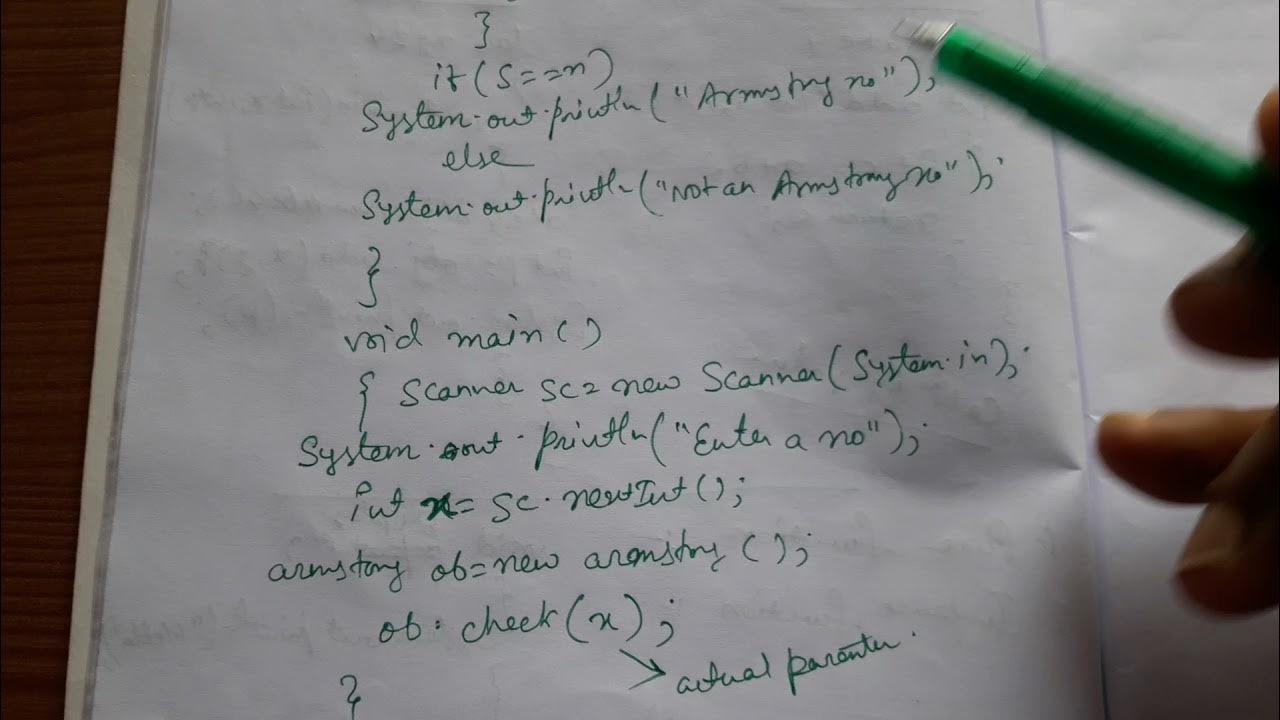 }
if(s==n)
System.out.println("Armstrong no");
else
System.out.println("Not an Armstrong no");
}
void main()
{ Scanner sc=new Scanner(System.in);
System.out.println("Enter a no");
int x=sc.nextInt();
armstrong ob=new armstrong();
ob.check(x);
actual parameter.
}